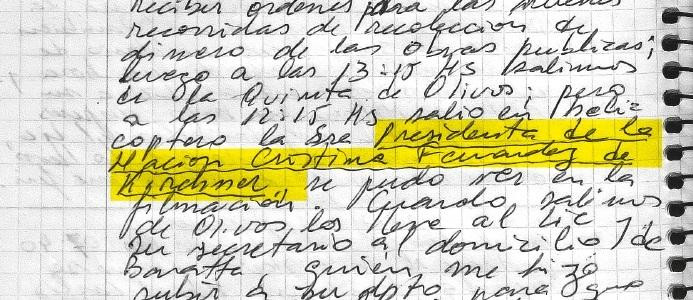 recibir ordenes para las nuevas
recorridas de recoleccion de
dinero de las obras publicas;
luego a las 13:15 Hs salimos
de la Quinta de Olivos; pero
a las 12:15 Hs salio en heli-
coptero la Sra Presidenta de la
Nacion Cristina Fernandez de
Kirchner se pudo ver en la
filmación. Cuando salimos
de Olivos los lleve al Lic y
su secretario al domicilio de
Baratta, quien me hizo
subir a su dpto para que